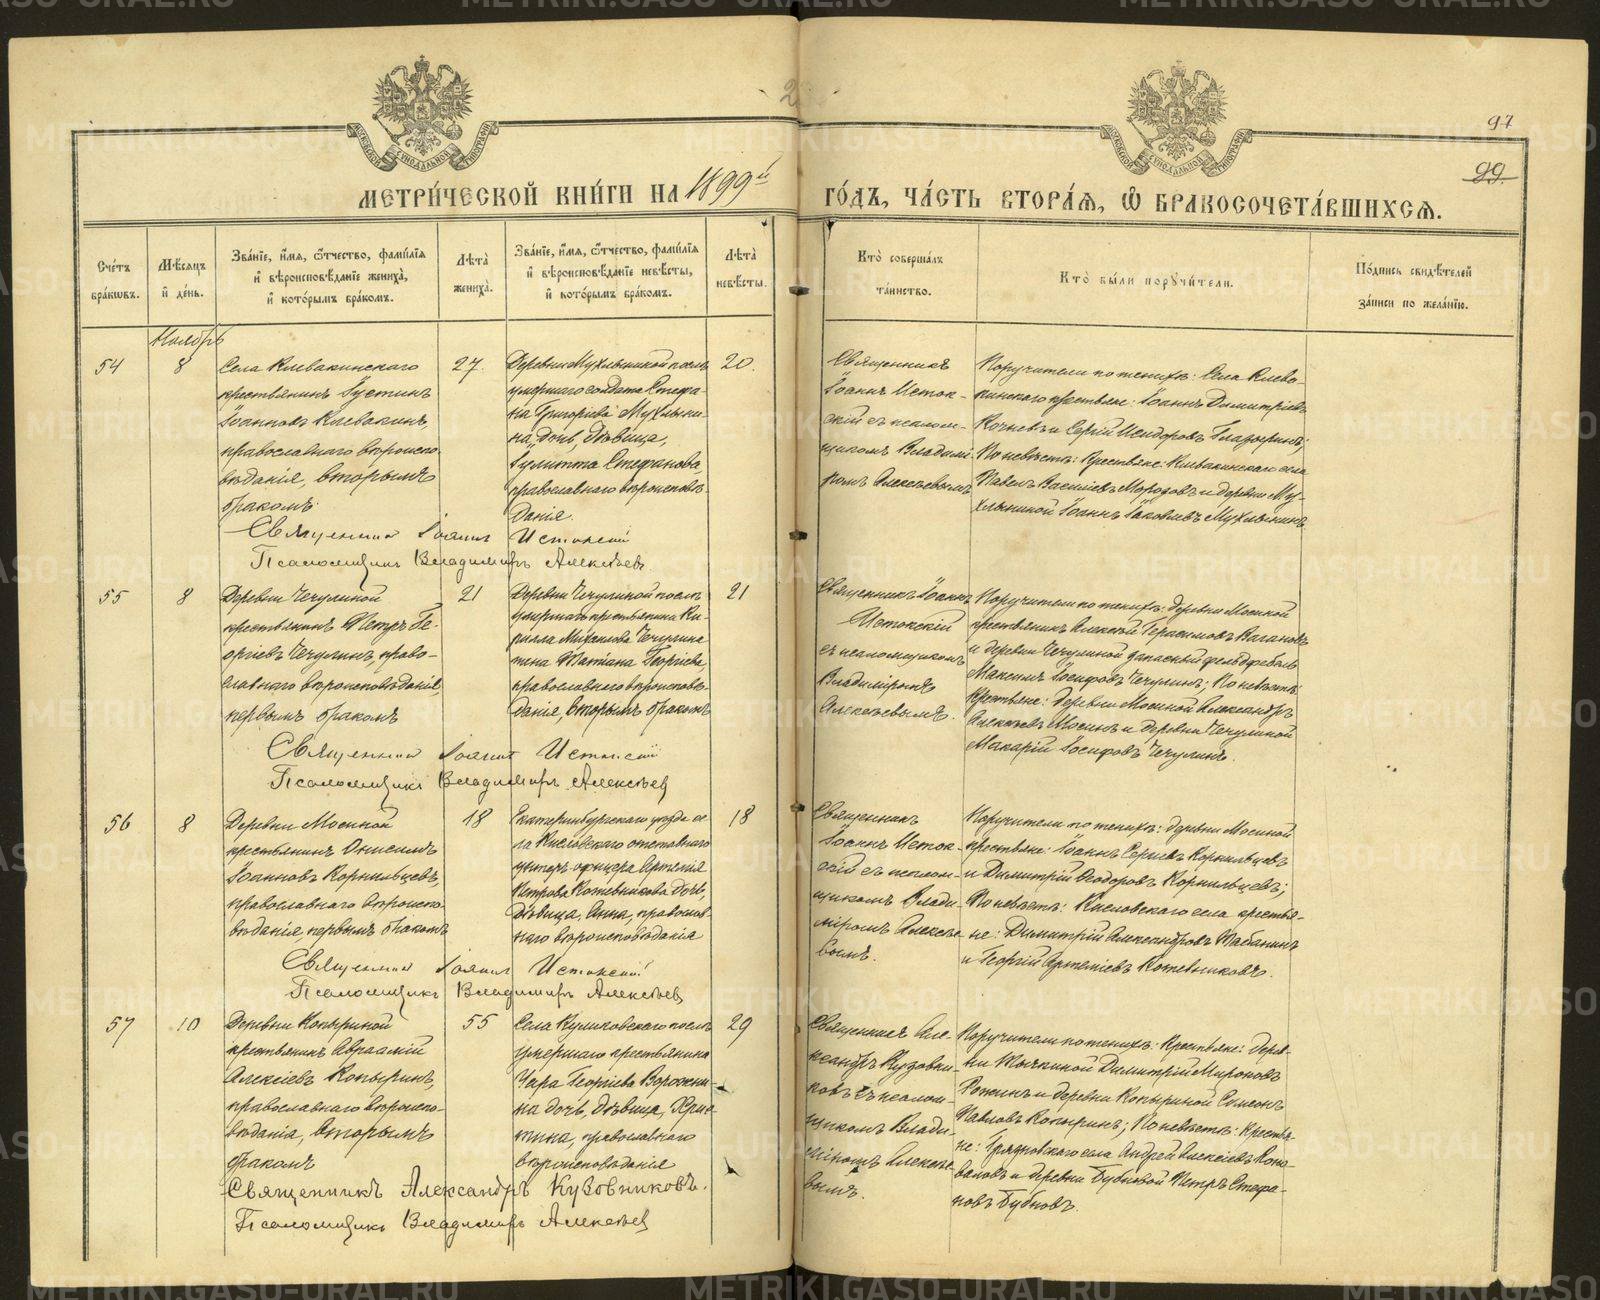 97
99.
МОСКОВСКОЙ СѴНОДАЛЬНОЙ ТИПОГРАФІИ
МЕТРИ́ЧЕСКОЙ КНИ́ГИ НА 1899й ГО́ДЪ, ЧА́СТЬ ВТОРА́Я, Ѡ҆ БРАКОСОЧЕТА́ВШИХСЯ.
Сче́тъ бра́кωвъ.
Мѣ́сяцъ и҆ де́нь.
Зва́нїе, и҆́мя, ѻ҆́тчество, фами́лїя и҆ вѣроисповѣ́данїе жениха̀, и҆ кото́рымъ бра́комъ.
Лѣ́та̀ жениха̀.
Зва́нїе, и҆́мя, ѻ҆́тчество, фами́лїя и҆ вѣроисповѣ́данїе невѣ́сты, и҆ кото́рымъ бра́комъ.
Лѣ́та̀ невѣ́сты.
Кто̀ соверша́лъ та́инство.
Кто̀ бы́ли поручи́тели.
По́дпись свидѣ́телей за́писи по жела́нїю.
Ноябрь
54
8
Села Клевакинскаго
крестьянинъ Іустинъ
Іоанновъ Клевакинъ,
православнаго вѣроиспо-
вѣданія, вторымъ
бракомъ.
27.
Деревни Мухлыниной послѣ
умершаго солдата Стефа-
на Григоріева Мухлыни-
на, дочь, дѣвица,
Іулитта Стефанова,
православнаго вѣроисповѣ-
данія.
20.
Священникъ
Іоаннъ Исток-
скій съ псалом-
щикомъ Владимі-
ромъ Алексѣевымъ
Поручители по женихѣ: Села Клева-
кинскаго крестьяне: Іоаннъ Димитріевъ
Кочневъ и Сергій Исидоровъ Гладыринъ;
По невѣстѣ: крестьяне: Клевакинскаго села
Павелъ Василіевъ Морозовъ и деревни Му-
хлыниной Іоаннъ Іаковлевъ Мухлынинъ
Священникъ Іоаннъ Истокскій
Псаломщикъ Владимиръ Алексѣевъ.
55
8
Деревни Чечулиной
крестьянинъ Петръ Ге-
оргіевъ Чечулинъ, право-
славнаго вѣроисповѣданія,
первымъ бракомъ
21
Деревни Чечулиной послѣ
умершаго крестьянина Ки-
рилла Михаилова Чечулина
жена Татіана Георгіева,
православнаго вѣроисповѣ-
данія, вторымъ бракомъ
21
Священникъ Іоаннъ
Истокскій
съ псаломщикомъ
Владиміромъ
Алексѣевымъ.
Поручители по женихѣ: деревни Мосиной
крестьянинъ Алексѣй Герасимовъ Вагановъ
и деревни Чечулиной запасный фельдфебель
Максимъ Іосифовъ Чечулинъ; По невѣстѣ:
Крестьяне: Деревни Мосиной Александръ
Алексѣевъ Мосинъ и деревни Чечулиной
Макарій Іосифовъ Чечулинъ.
Священникъ Іоаннъ Истокскій
Псаломщикъ Владимиръ Алексѣевъ
56
8
Деревни Мосиной
крестьянинъ Онисимъ
Іоанновъ Корнильцевъ,
православнаго вѣроиспо-
вѣданія первымъ бракомъ
18
Екатеринбургскаго уѣзда се-
ла Кисловскаго отставнаго
унтеръ-офицера Артемія
Петрова Кожевникова дочь,
дѣвица, Анна, православ-
наго вѣроисповѣданія
18
Священникъ
Іоаннъ Исток-
скій съ псалом-
щикомъ Влади-
міромъ Алексѣе-
вымъ.
Поручители по женихѣ: деревни Мосиной
крестьяне: Іоаннъ Сергіевъ Корнильцевъ
и Димитрій Ѳеодоровъ Корнильцевъ;
По невѣстѣ: Кисловскаго села крестья-
не: Димитрій Александровъ Табанинъ
и Георгій Артеміевъ Кожевниковъ.
Священникъ Іоаннъ Истокскій
Псаломщикъ Владимиръ Алексѣевъ
57
10
Деревни Копыриной
крестьянинъ Авраамій
Алексіевъ Копыринъ,
православнаго вѣроиспо-
вѣданія, вторымъ
бракомъ
55
Села Куликовскаго послѣ
умершаго крестьянина
Уара Георгіева Ворожни-
на дочь, дѣвица, Хрис-
тина, православнаго
вѣроисповѣданія
29
Священникъ Але-
ксандръ Кузовни-
ковъ съ псалом-
щикомъ Влади-
міромъ Алексѣе-
вымъ.
Поручители по женихѣ: Крестьяне: Дерев-
ни Тычкиной Димитрій Мироновъ
Рожинъ и деревни Копыриной Симеонъ
Павловъ Копыринъ; По невѣстѣ: Крестья-
не: Грязновскаго села Андрей Алексіевъ Коно-
валовъ и деревни Бубновой Петръ Стефа-
новъ Бубновъ.
Священникъ Александръ Кузовниковъ.
Псаломщикъ Владимиръ Алексѣевъ
METRIKI.GASO-URAL.RU